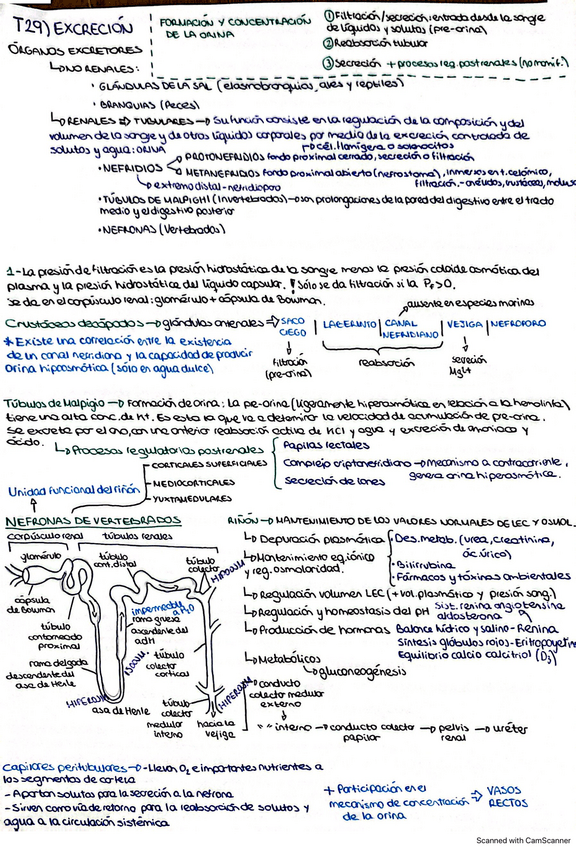 T29) EXCRECIÓN
FORMACIÓN Y CONCENTRACIÓN
DE LA ORINA
① Filtración/secreción: entrada desde la sangre
de líquidos y solutos (pre-orina)
② Reabsorción tubular
③ Secreción + procesos reg. postrenales (no mamíf.)
ÓRGANOS EXCRETORES
↳ NO RENALES:
· GLÁNDULAS DE LA SAL (elasmobranquios, aves y reptiles)
· BRANQUIAS (Peces)
↳ RENALES ⇒ TUBULARES → Su función consiste en la regulación de la composición y del
volumen de la sangre y de otros líquidos corporales por medio de la excreción controlada de
solutos y agua: ORINA
cél. flamígera o solenocitos
· NEFRIDIOS
PROTONEFRIDIOS fondo proximal cerrado, secreción o filtración
METANEFRIDIOS fondo proximal abierto (nefrostoma), inmersos en t. celómico,
filtración.- anélidos, crustáceos, moluscos
↳ extremo distal - nefridioporo
· TÚBULOS DE MALPIGHI (Invertebrados) → son prolongaciones de la pared del digestivo entre el tracto
medio y el digestivo posterior
· NEFRONAS (Vertebrados)
1- La presión de filtración es la presión hidrostática de la sangre menos la presión coloide osmótica del
plasma y la presión hidrostática del líquido capsular. ! Sólo se da filtración si la PF>0.
Se da en el corpúsculo renal: glomérulo + cápsula de Bowman.
ausente en especies marinas
Crustáceos decápodos → glándulas antenales ⇒ SACO CIEGO | LABERINTO | CANAL NEFRIDIANO | VEJIGA | NEFROPORO
filtración
(pre-orina)
reabsorción
secreción
Mg²⁺
* Existe una correlación entre la existencia
de un canal nefridiano y la capacidad de producir
orina hipoosmótica (sólo en agua dulce)
Túbulos de Malpigio → Formación de orina: La pre-orina (ligeramente hiperosmótica en relación a la hemolinfa)
tiene una alta conc. de K⁺. Es esto lo que va a determinar la velocidad de acumulación de pre-orina.
Se excreta por el ano, con una anterior reabsorción activa de KCl y agua y excreción de amoniaco y
ácido.
↳ Procesos regulatorios postrenales
Papilas rectales
Complejo criptonefridiano → mecanismo a contracorriente,
genera orina hiperosmótica.
Secreción de iones
Unidad funcional del riñón
CORTICALES SUPERFICIALES
MEDIOCORTICALES
YUXTAMEDULARES
NEFRONAS DE VERTEBRADOS
corpúsculo renal
túbulos renales
glomérulo
cápsula
de Bowman
túbulo
contorneado
proximal
rama delgada
descendente del
asa de Henle
HIPEROSM
asa de Henle
túbulo
cont. distal
impermeable
a H₂O
rama gruesa
ascendente del
adH
túbulo
colector
HIPOOSM
túbulo
colector
cortical
túbulo
colector
medular
interno
HIPEROSM
hacia la
vejiga
RIÑÓN → MANTENIMIENTO DE LOS VALORES NORMALES DE LEC Y OSMOL.
↳ Depuración plasmática
· Des. metab. (urea, creatinina,
ác. úrico)
· Bilirrubina
· Fármacos y toxinas ambientales
↳ Mantenimiento eq. iónico
y reg. osmolaridad.
↳ Regulación volumen LEC (+ vol. plasmático y presión sang.)
↳ Regulación y homeostasis del pH
Sist. renina angiotensina
aldosterona
↳ Producción de hormonas
Balance hídrico y salino - Renina
Síntesis glóbulos rojos - Eritropoyetina
Equilibrio calcio calcitriol (D₃)
↳ Metabólicos
↳ gluconeogénesis
conducto
colector medular
externo
" " interno → conducto colector papilar → pelvis renal → uréter
Capilares peritubulares → - Llevan O₂ e importantes nutrientes a
los segmentos de corteza
- Aportan solutos para la secreción a la nefrona
- Sirven como vía de retorno para la reabsorción de solutos y
agua a la circulación sistémica
+ Participación en el
mecanismo de concentración
de la orina
⇒ VASOS
RECTOS
Scanned with CamScanner